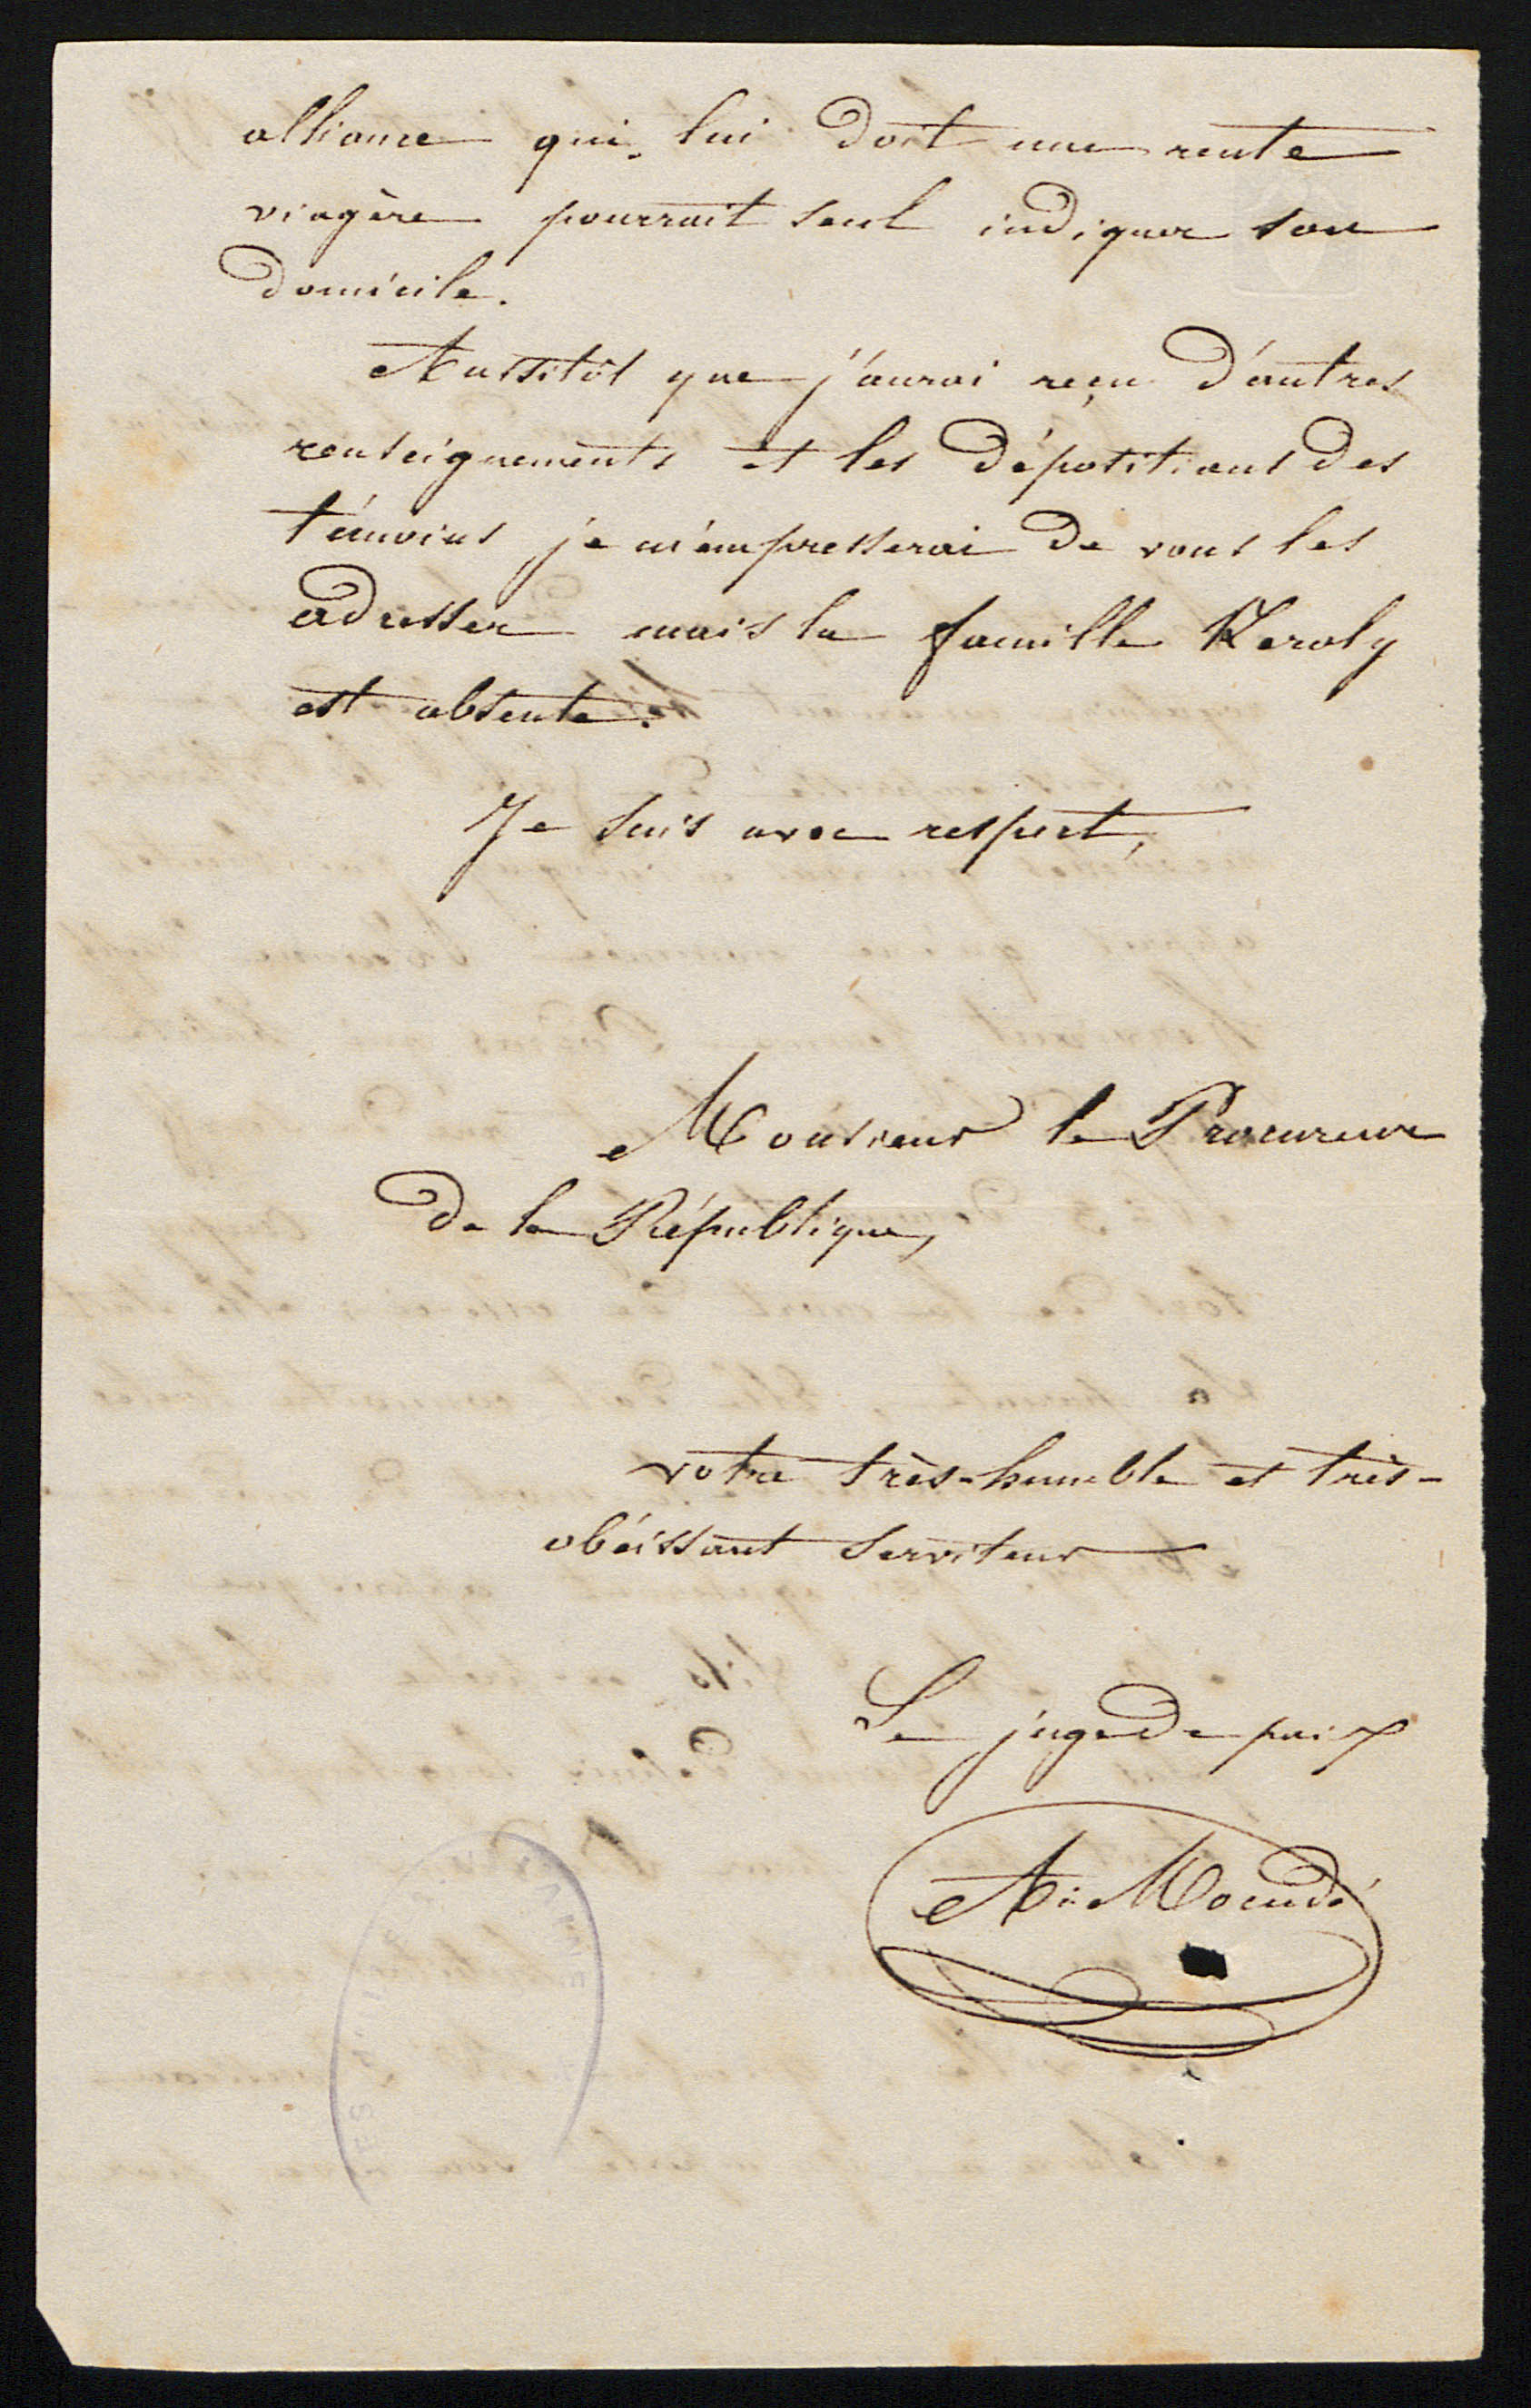 alliance qui lui doit une rente
viagère pourrait seul indiquer son
domicile.
Aussitôt que j'aurai reçu d'autres
renseignements et les dépositions des
témoins je m'empresserai de vous les
adresser mais la famille Keroly
est absente.
Je suis avec respect,
Monsieur le Procureur
de la République,
votre très-humble et très-
obéissant serviteur
Le juge de paix